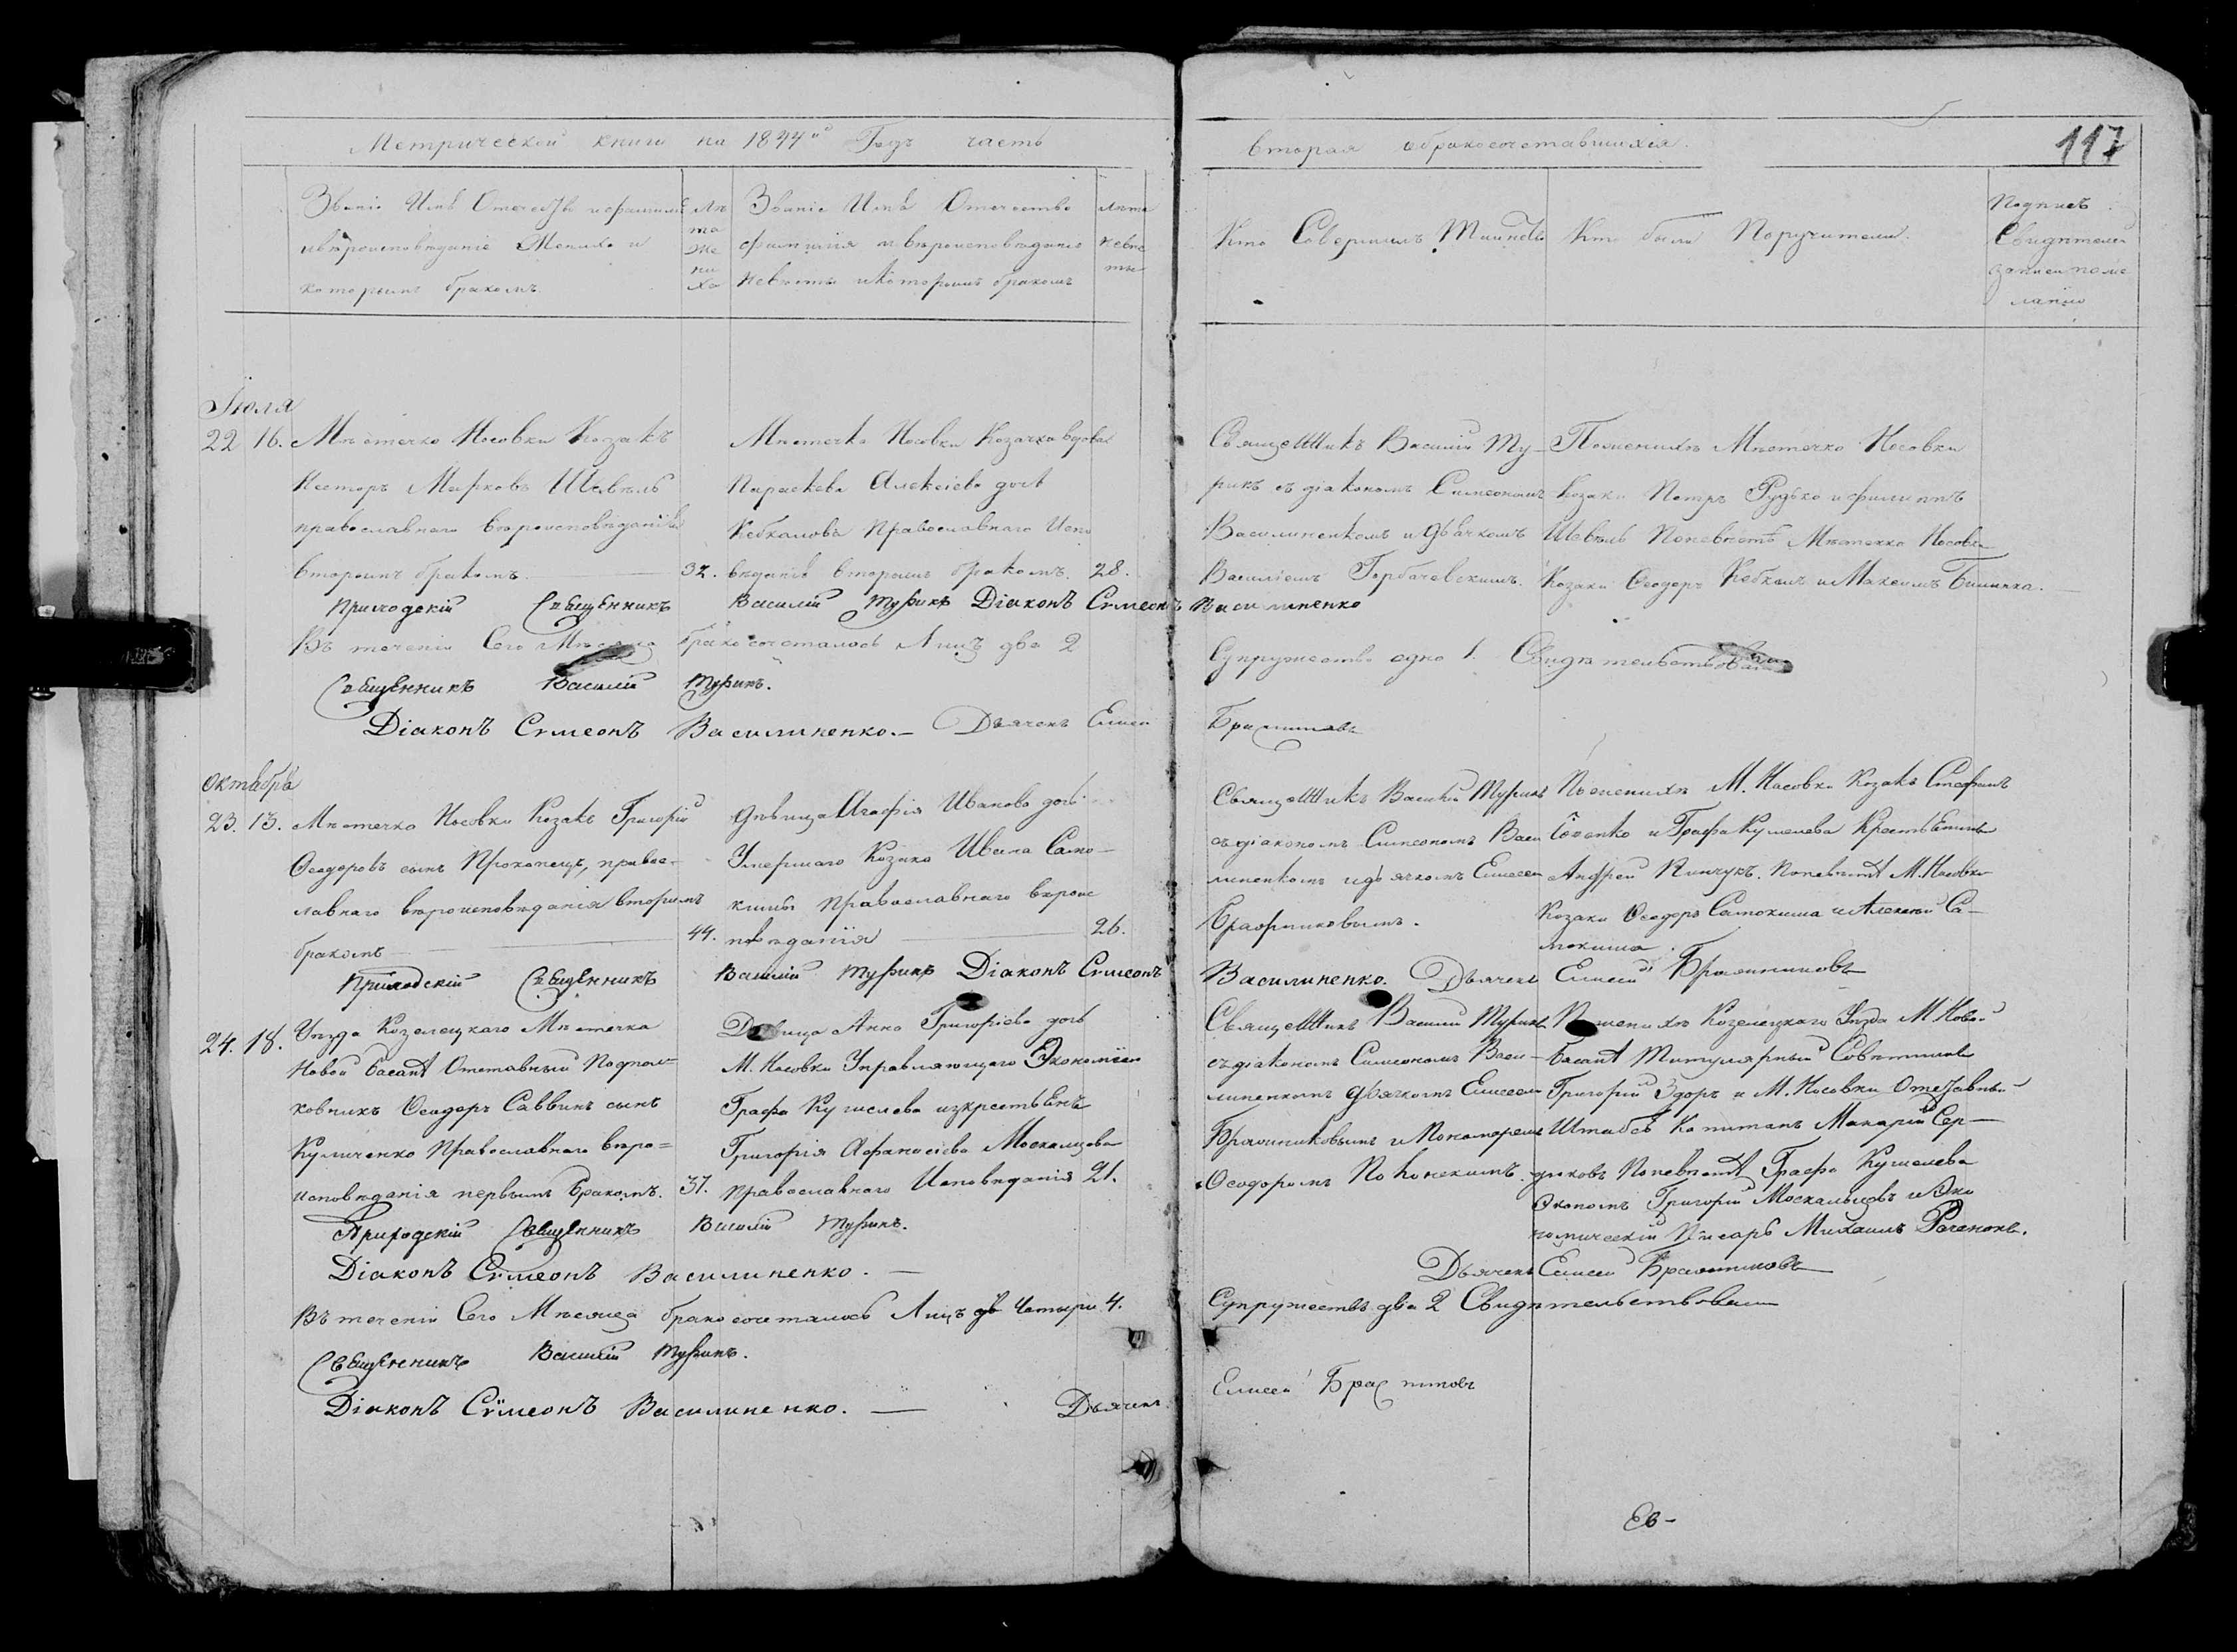 Метрической книги на 1844й Годъ часть
вторая обракосочетавшихся.
117
Званіе Имя Отечество и фамилія
ивѣроисповѣданіе Жениха и
которымъ бракомъ.
Лѣ
та
Же
ни
ха
Званіе Имя Отечество
фамилія и вѣроисповѣданіе
невѣсты икоторымъ бракомъ
лѣта
невѣс
ты
Кто Совершалъ Таинство
Кто были Поручители.
Подписъ
Свидѣтелей
записи поже
ланію
Іюля
22 16. Мѣстечка Носовки Козакъ
Несторъ Марковъ Шевѣль
православнаго вѣроисповѣданія
вторымъ бракомъ. 32.
Мѣстечка Носовки Козачка вдова
Параскева Алексіева дочь
Кебкалова Православнаго Испо
вѣданія вторымъ бракомъ. 28.
Священникъ Василій Ту-
рикъ съ діакономъ Симеономъ
Василиненкомъ и дьячкомъ
Василіемъ Горбачевскимъ.
Поженихѣ Мѣстечка Носовки
Козаки Петръ Рудько и филиппъ
Шевѣль Поневѣстѣ Мѣстечка Носовки
Козаки Феодоръ Кебкалъ и Максимъ
Приходскій Священникъ Василій Турикъ Діаконъ Симеонъ Василиненко
Въ теченіи Сего Мѣсяца бракосочеталось Лицъ два 2
Супружество одно 1. Свидѣтельствовали
Священникъ Василій Турикъ.
Діаконъ Симеонъ Василиненко.— Дьячекъ Елисей
Октября
23. 13. Мѣстечка Носовки Козакъ Григорій
Феодоровъ сынъ Прокопецъ, правос-
лавнаго вѣроисповѣданія вторымъ
бракомъ 44.
дѣвица Агафія Иванова дочь
Умершаго Козака Ивана Само-
кишы Православнаго вѣроис
повѣданія 26.
Священникъ Василій Турикъ
съ діакономъ Симеономъ Васи
линенкомъ идьячкомъ Елисеем
Поженихѣ М. Носовки Козакъ Стефанъ
и Графа Кушелева Крестьянинъ
Андрей Кинчукъ. Поневѣстѣ М. Носовки
Козаки Феодоръ Самокиша и Алексѣй Са-
мокиша.
Приходскій Священникъ Василій Турикъ Діаконъ Симеонъ
Василиненко. Дьячекъ Елисей
24. 18. Уѣзда Козелецкаго Мѣстечка
Новой Басани Отставный Подпол=
ковникъ Феодоръ Саввинъ сынъ
Куличенко Православнаго вѣро=
исповѣданія первымъ бракомъ. 37.
Дѣвица Анна Григоріева дочь
М. Носовки Управляющаго Экономіею
Графа Кушелева изкрестьянъ
Григорія Афанасіева Москальцова
Православнаго Исповѣданія 21.
Священникъ Василій Турикъ
съ діакономъ Симеономъ Васи-
линенкомъ дьячкомъ Елисеем
и Пономаремъ
Феодоромъ
Поженихѣ Козелецкаго Уѣзда М. Новой
Басани Титулярный Совѣтникъ
Григорій Здоръ и М. Носовки Отставный
Штабсъ Капитанъ Макарій Сер-
дюковъ Поневѣстѣ Графа Кушелева
Экономъ Григорій Москальцовъ и Эко
номическій Писарь Михаилъ
Приходскій Священникъ Василій Турикъ.
Діаконъ Симеонъ Василиненко.—
Дьячекъ Елисей
Въ теченіи Сего Мѣсяца бракосочеталось Лицъ Четыри 4.
Супружествъ два 2 Свидѣтельствовали
Священникъ Василій Турикъ.
Діаконъ Симеонъ Василиненко.— Дьячекъ
Елисей